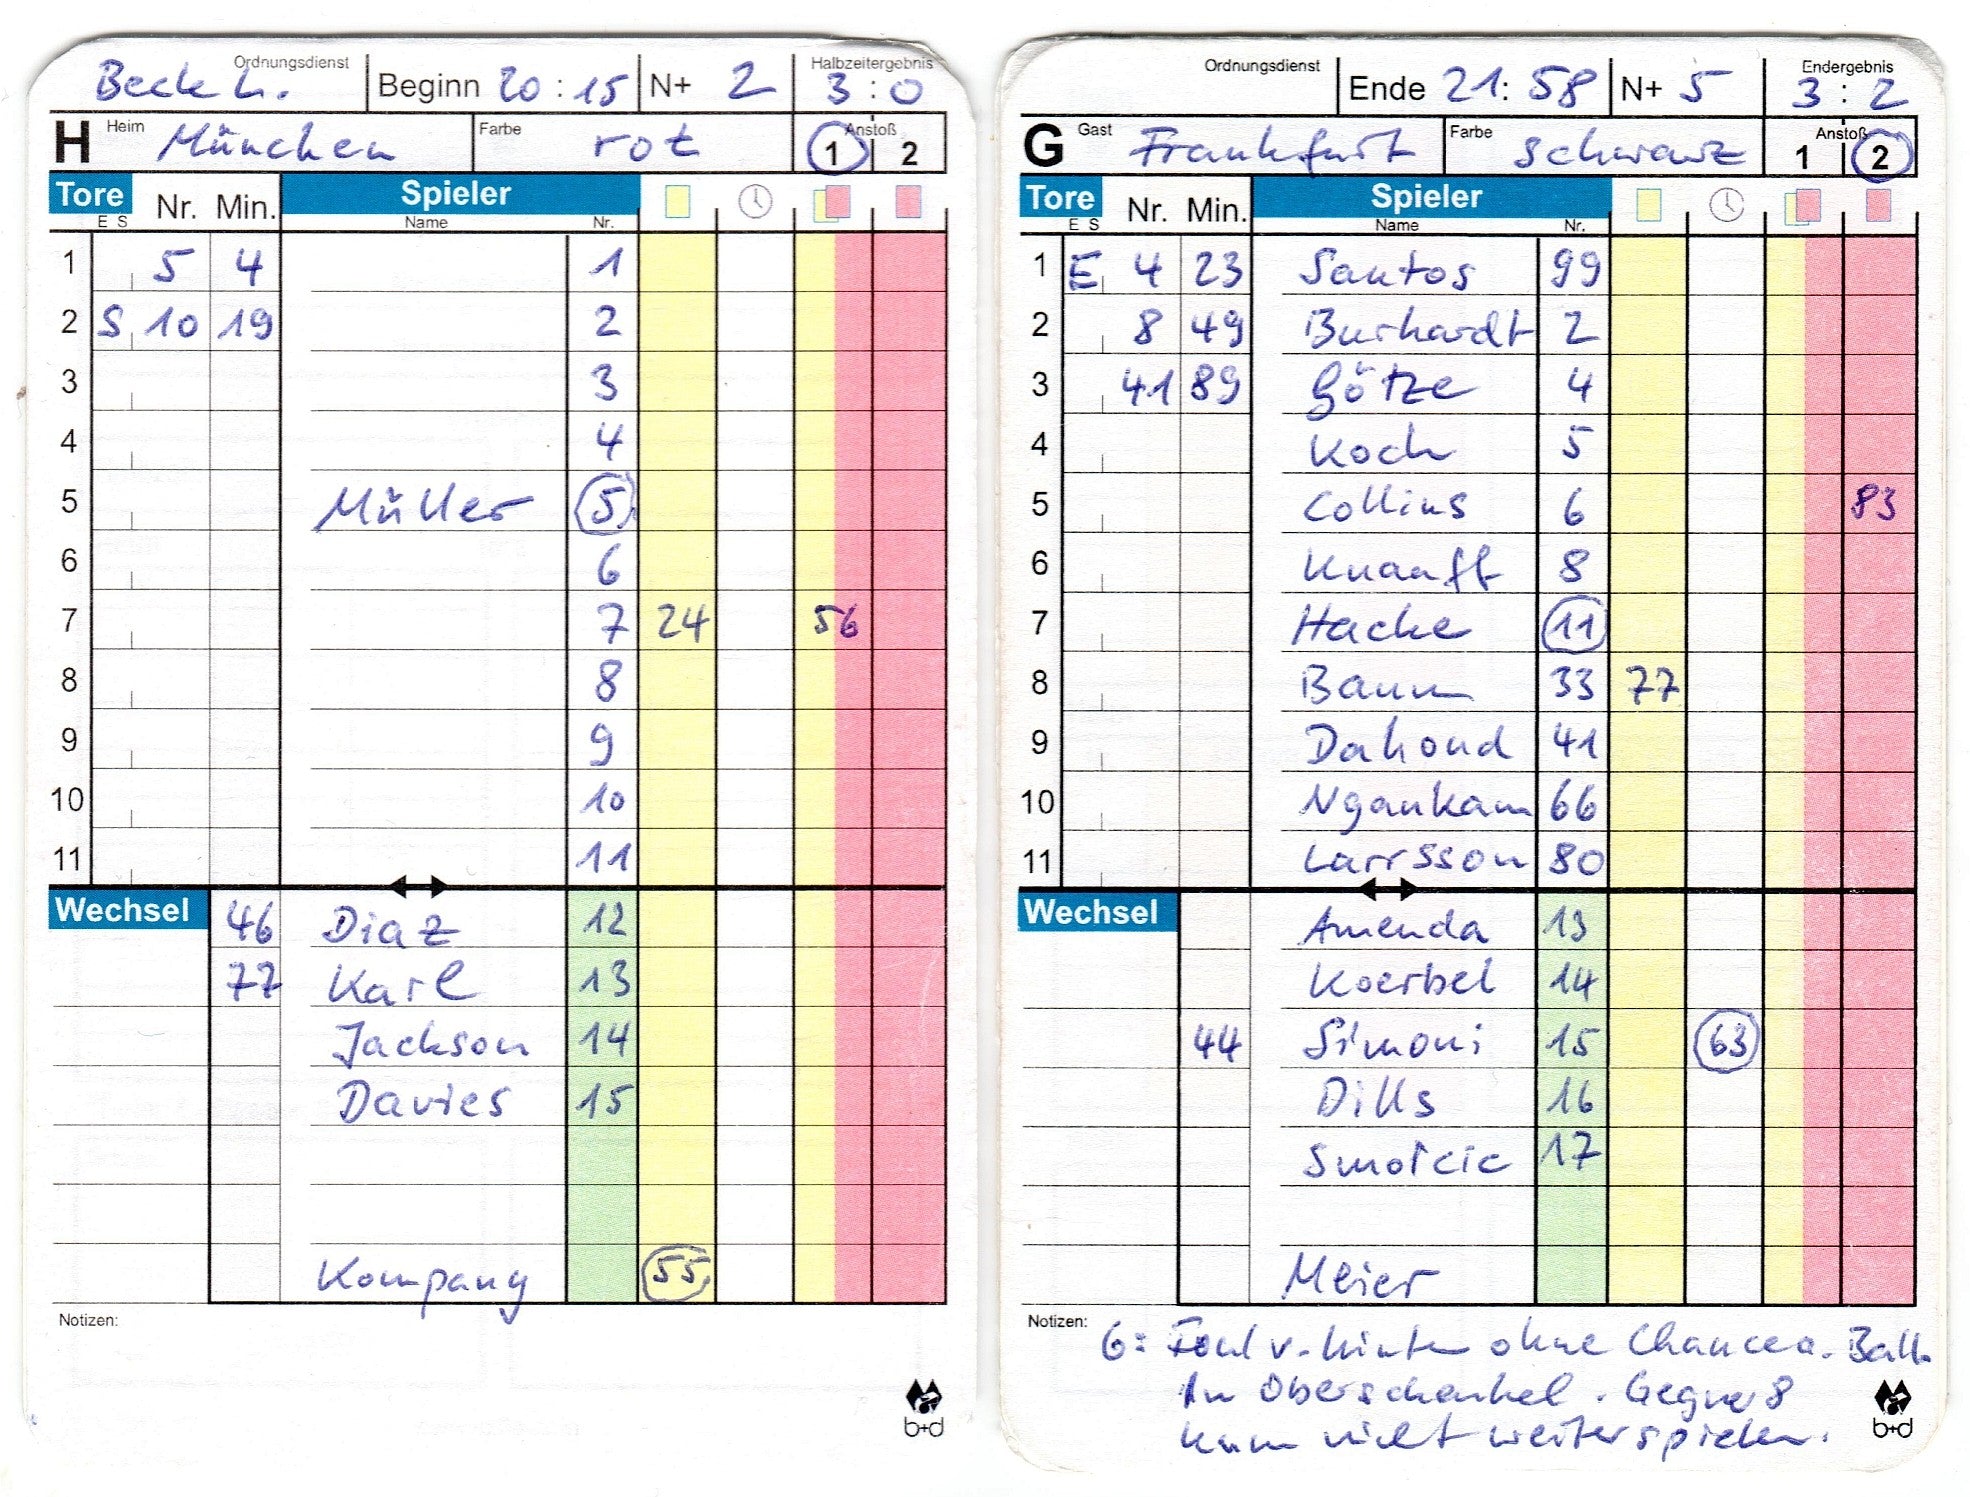 Ordnungsdienst Beck L. Beginn 20:15 N+ 2 Halbzeitergebnis 3:0
H Heim München Farbe rot Anstoß 1 2
Tore Nr. Min. Spieler
E S Name Nr.
1 5 4 1
2 S 10 19 2
3 3
4 4
5 Müller 5
6 6
7 7 24 56
8 8
9 9
10 10
11 11
Wechsel 46 Diaz 12
77 Karl 13
Jackson 14
Davies 15
Kompany 55
Notizen:
b+d
Ordnungsdienst Ende 21:58 N+ 5 Endergebnis 3:2
G Gast Frankfurt Farbe schwarz Anstoß 1 2
Tore Nr. Min. Spieler
E S Name Nr.
1 E 4 23 Santos 99
2 8 49 Burhardt 2
3 41 89 Götze 4
4 Koch 5
5 Collins 6 83
6 Knaaff 8
7 Hacke 11
8 Baum 33 77
9 Dahoud 41
10 Ngankam 66
11 Larrsson 80
Wechsel Amenda 13
Koerbel 14
44 Simoni 15 63
Dills 16
Smolcic 17
Meier
Notizen: 6: Foul v. hinten ohne Chance a. Ball
in Oberschenkel. Gegner 8
kann nicht weiterspielen.
b+d